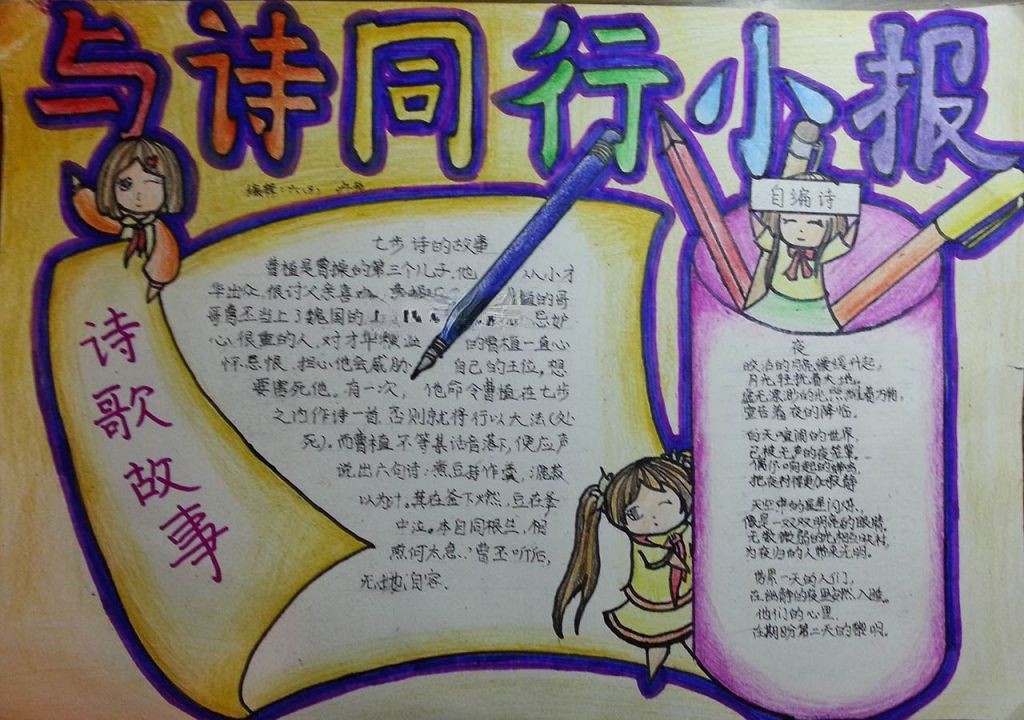 与诗同行小报
编辑:六(8)
诗歌故事
七步诗的故事
曹植是曹操的第三个儿子.他 从小才
华出众.很讨父亲喜 的哥
哥曹丕当上了魏国的 忌妒
心很重的人.对才华 的曹植一直心
怀忌恨.担心他会威胁 自己的王位,想
要害死他。有一次, 他命令曹植在七步
之内作诗一首,否则就将行以大法(处
死),而曹植不等其话音落下,便应声
说出六句诗:煮豆持作羹,漉菽
以为汁,萁在釜下燃,豆在釜
中泣。本自同根生,相
煎何太急。曹丕听后,
无地自容.
自编诗
夜
皎洁的月亮缓缓升起,
月光轻抚着大地。
宣告着夜的降临。
白天喧闹的世界,
已被无声的夜笼罩。
偶尔响起的
把夜衬得更加寂静
天空中的星星闪烁,
像是一双双明亮的眼睛,
无数微弱的光
为夜归的人带来光明。
一天的人们,
在幽静的夜里安然入睡。
他们的心里
在期盼第二天的黎明。